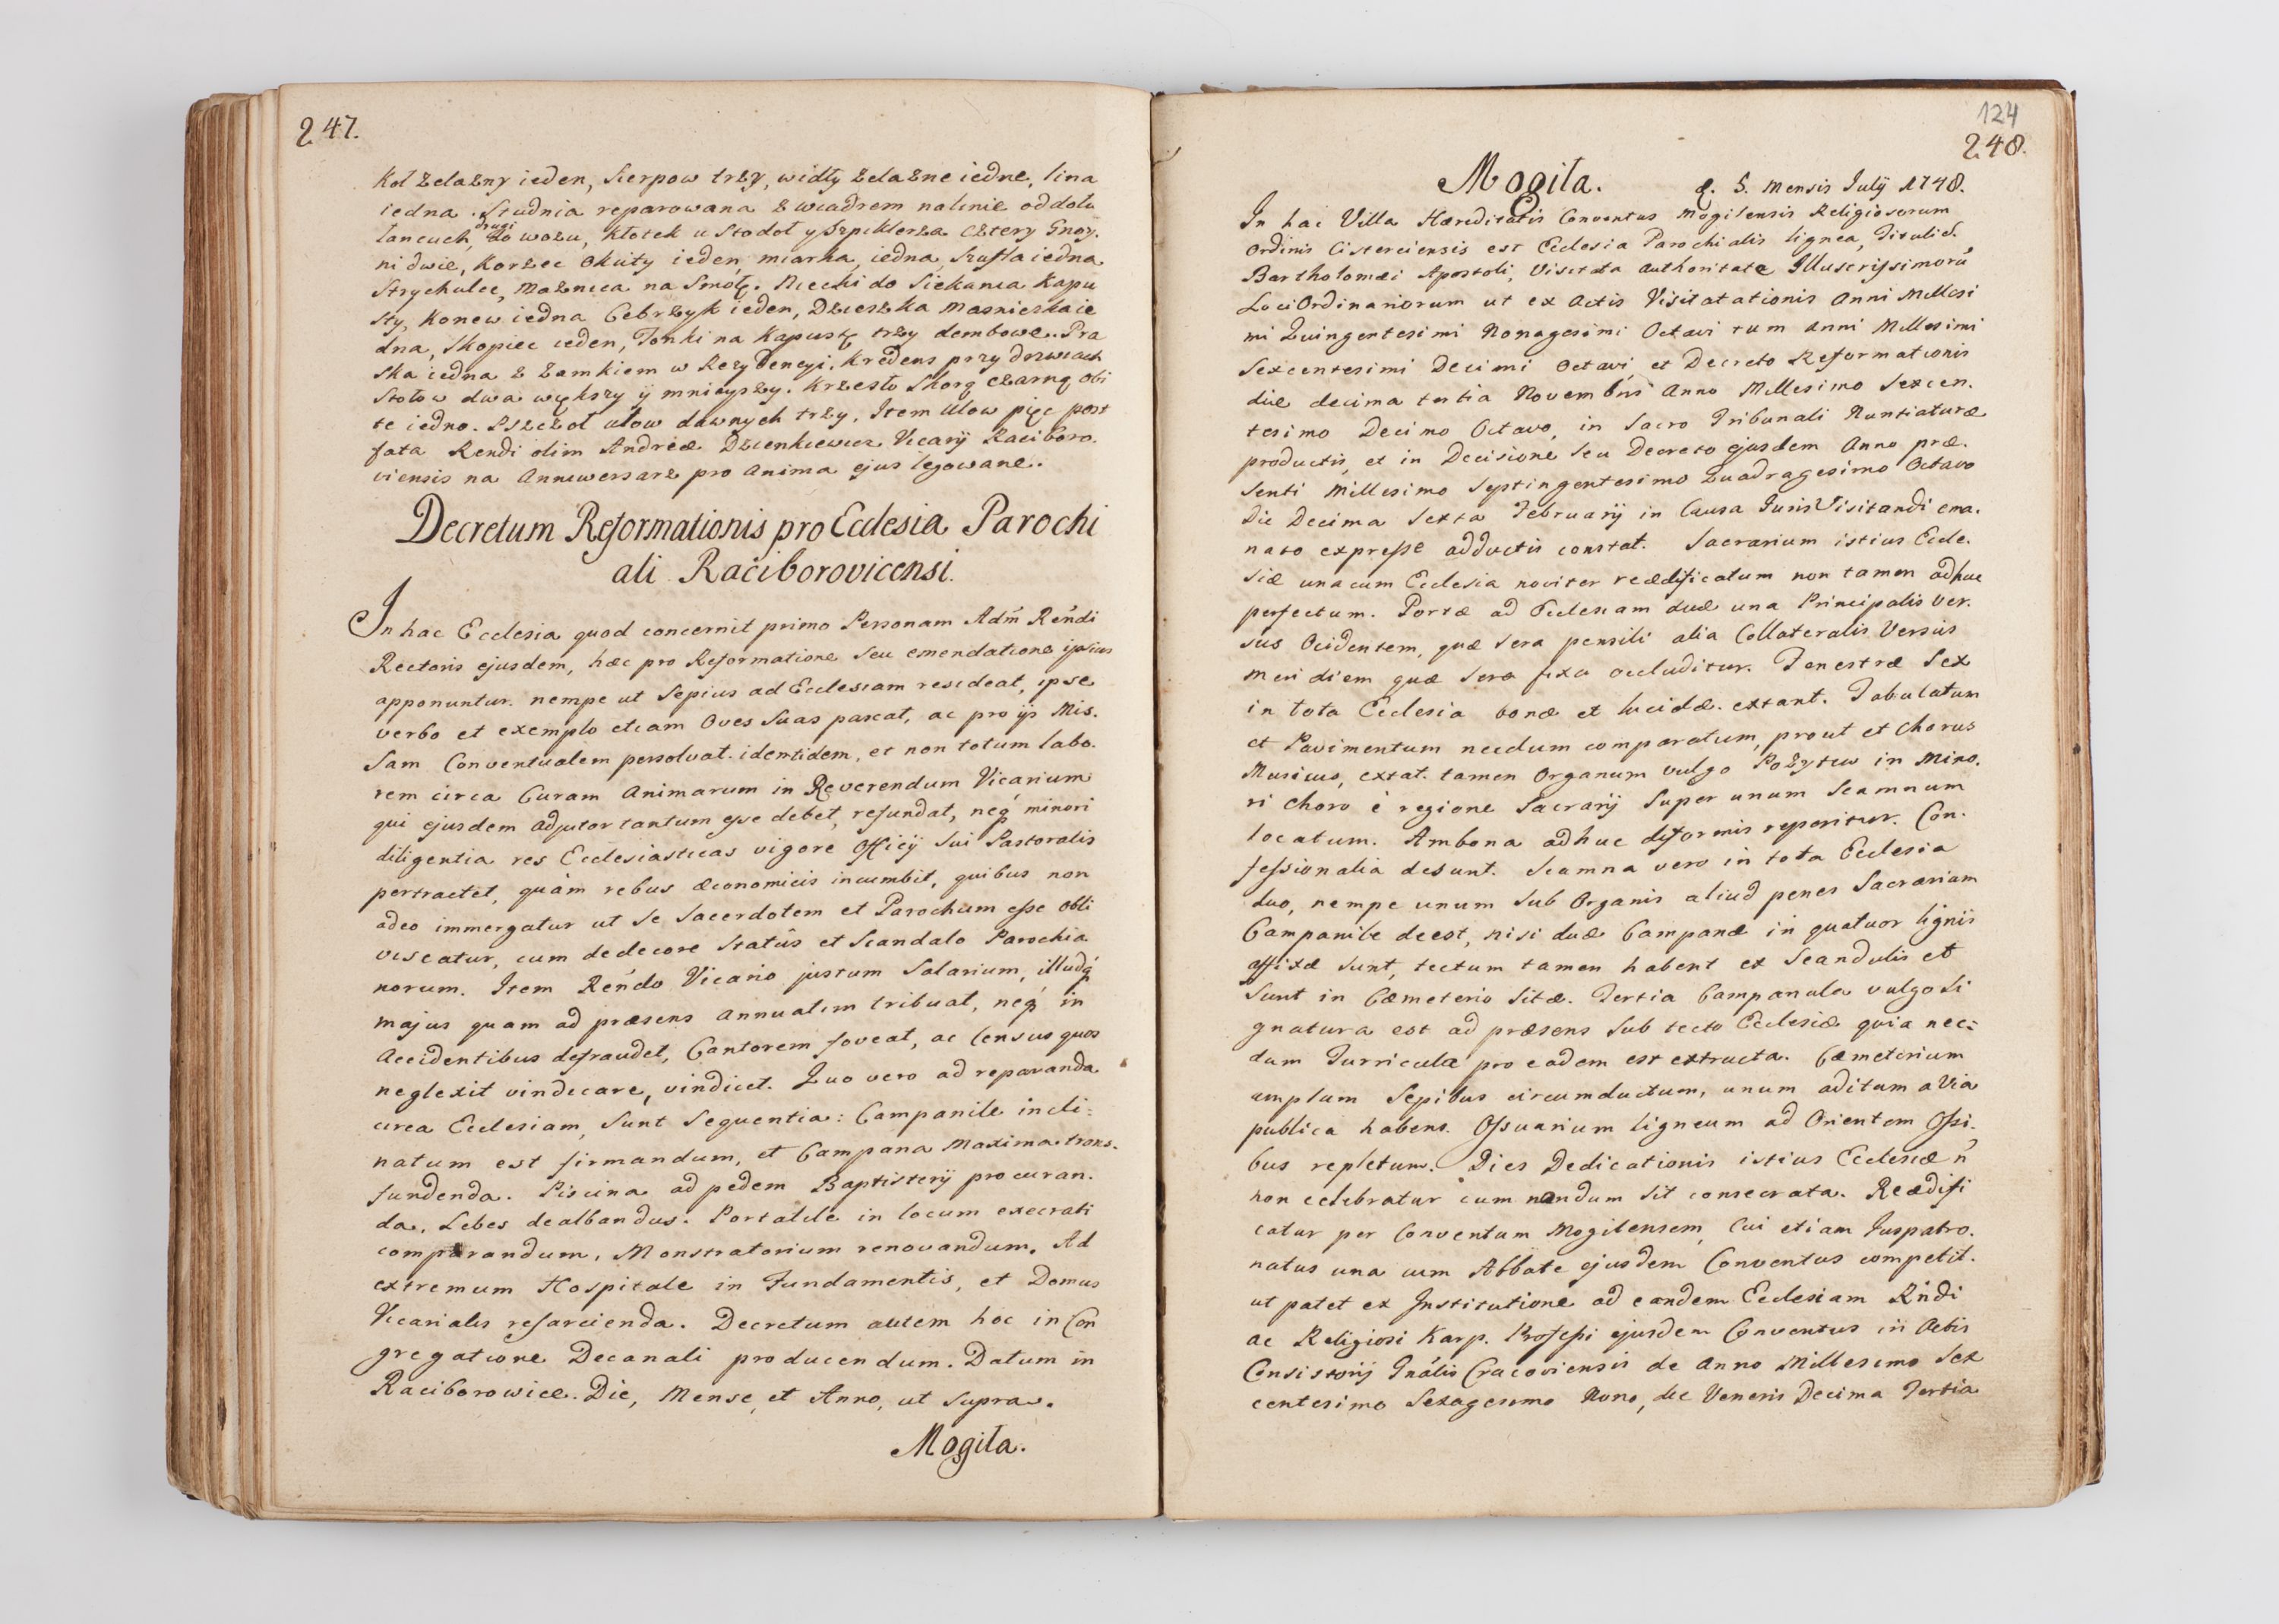 247.
Kol zelazny ieden, Sierpow trzy, widły zelazne iedne, lina
iedna. Studnia reparowana z wiadrem nalinie oddolu
drugi
Łancuch, do wozu, Kłotek u Stodoł y Szpiklerza cztery Gnoy.
ni dwie, Korzec okuty ieden, miarka iedna, Szufla iedna
Strychulec, maznica na Smołę. Niecki do Siekania Kapu
sty, Konew iedna Cebrzyk ieden, Dzieszka masnieska ie
dna, Skopiec ieden, Tonki na Kapustę trzy dembowe. Pra
ska iedna z zamkiem w Rezydencyi. Kredens przy drzwiach
Stołow dwa większy ÿ mnieyszy. Krzesło Skorą czarną obi
te iedno. Pszczoł ulow dawnych trzy, Item Ulow pięć post
fata Rendi olim Andreæ Dzienkiewicz Vicarij Raciboro.
viensis na Anniwersarz pro anima ejus legowane.
Decretum Reformationis pro Ecclesia Parochi
ali Raciborovicensi.
In hac Ecclesia quod concernit primo Personam Adm̃ Rendi
Rectoris ejusdem, hæc pro Reformatione seu emendatione ipsius
apponuntur. nempe ut Sepius ad Ecclesiam resideat, ipse
verbo et exemplo etiam Oves Suas pascat, ac pro ijs Mis.
Sam Conventualem persolvat identidem, et non totum labo.
rem circa Curam Animarum in Reverendum Vicarium
qui ejusdem adjutor tantum esse debet, refundat, neq́ minori
diligentia res Ecclesiasticas vigore Officij Sui Pastoralis
pertractet, quàm rebus œconomicis incumbit, quibus non
adeo immergatur ut Se Sacerdotem et Parochum esse obli
viscatur, cum dedecore Statûs et Scandalo Parochia
norum. Item Rendo Vicario justum Salarium, illudq́
majus quam ad præsens annuatim tribuat, neq́ in
Accidentibus defraudet, Cantorem foveat, ac Census quos
neglexit vindicare, vindicet. Quo vero ad reparanda
circa Ecclesiam, Sunt Sequentia: Campanile incli=
natum est firmandum, et Campana Maxima trans.
fundenda. Piscina ad pedem Baptisterij procuran.
da, Lebes dealbandus. Portatile in locum execrati
comparandum, Monstratorium renovandum. Ad
extremum Hospitale in Fundamentis, et Domus
Vicarialis resarcienda. Decretum autem hoc in Con
gregatione Decanali producendum. Datum in
Raciborowice. Die, Mense, et Anno, ut Supra.
Mogiła.
124
248.
Mogiła. d. 5. Mensis Julij 1748.
In hac Villa Hæreditatis Conventus Mogilensis Religiosorum
Ordinis Cisterciensis est Ecclesia Parochialis lignea, Tituli S.
Bartholomæi Apostoli, Visitata authoritate Illustrissimorũ
Loci Ordinariorum ut ex Actis Visitatationis Anni Millesi
mi Quingentesimi Nonagesimi Octavi tum anni Millesimi
Sexcentesimi Decimi Octavi et Decreto Reformationis
die decima tertia Novembris Anno Millesimo Sexcen.
tesimo Decimo Octavo, in Sacro Tribunali Nuntiaturæ
productis, et in Decisione Seu Decreto ejusdem Anno præ.
Senti Millesimo Septingentesimo Quadragesimo Octavo
Die Decima Sexta Februarij in Causa Juris Visitandi ema.
nato expresse adductis constat. Sacrarium istius Eccle.
siæ una cum Ecclesia noviter reædificatum non tamen adhuc
perfectum. Portæ ad Ecclesiam duæ una Principalis ver.
sus Ocidentem, quæ Sera pensili alia Collateralis Versus
meridiem quæ Sera fixa occluditur. Fenestræ Sex
in tota Ecclesia bonæ et lucidæ extant. Tabulatum
et Pavimentum necdum comparatum, prout et Chorus
Musicus, extat tamen Organum vulgo Pozytiw in Mino.
ri Choro è regione Sacrarij Super unum Scamnum
locatum. Ambona adhuc deformis reperitur. Con.
fessionalia desunt. Scamna vero in tota Ecclesia
duo, nempe unum Sub Organis aliud penes Sacrarium
Campanile deest, nisi duæ Campanæ in quatuor lignis
affixæ Sunt, tectum tamen habent ex Scandulis et
Sunt in Cæmeterio Sitæ. Tertia Campanula vulgo Si
gnatura est ad præsens Sub tecto Ecclesiæ quia nec=
dum Turricula pro eadem est extructa. Cæmeterium
amplum Sepibus circumductum, unum aditum a Via
publica habens. Ossuarium ligneum ad Orientem Ossi.
bus repletum. Dies Dedicationis istius Ecclesiæ ñ
non celebratur cum nondum sit consecrata. Reædifi
catur per Conventum Mogilensem, Cui etiam Juspatro.
natus una cum Abbate ejusdem Conventus competit.
ut patet ex Institutione ad eandem Ecclesiam Rńdi
ac Religiosi Karp. Professi ejusdem Conventus in Actis
Consistorij Gnâlis Cracoviensis de Anno Millesimo Sex
centesimo Sexagesimo Nono, die Veneris Decima Tertia